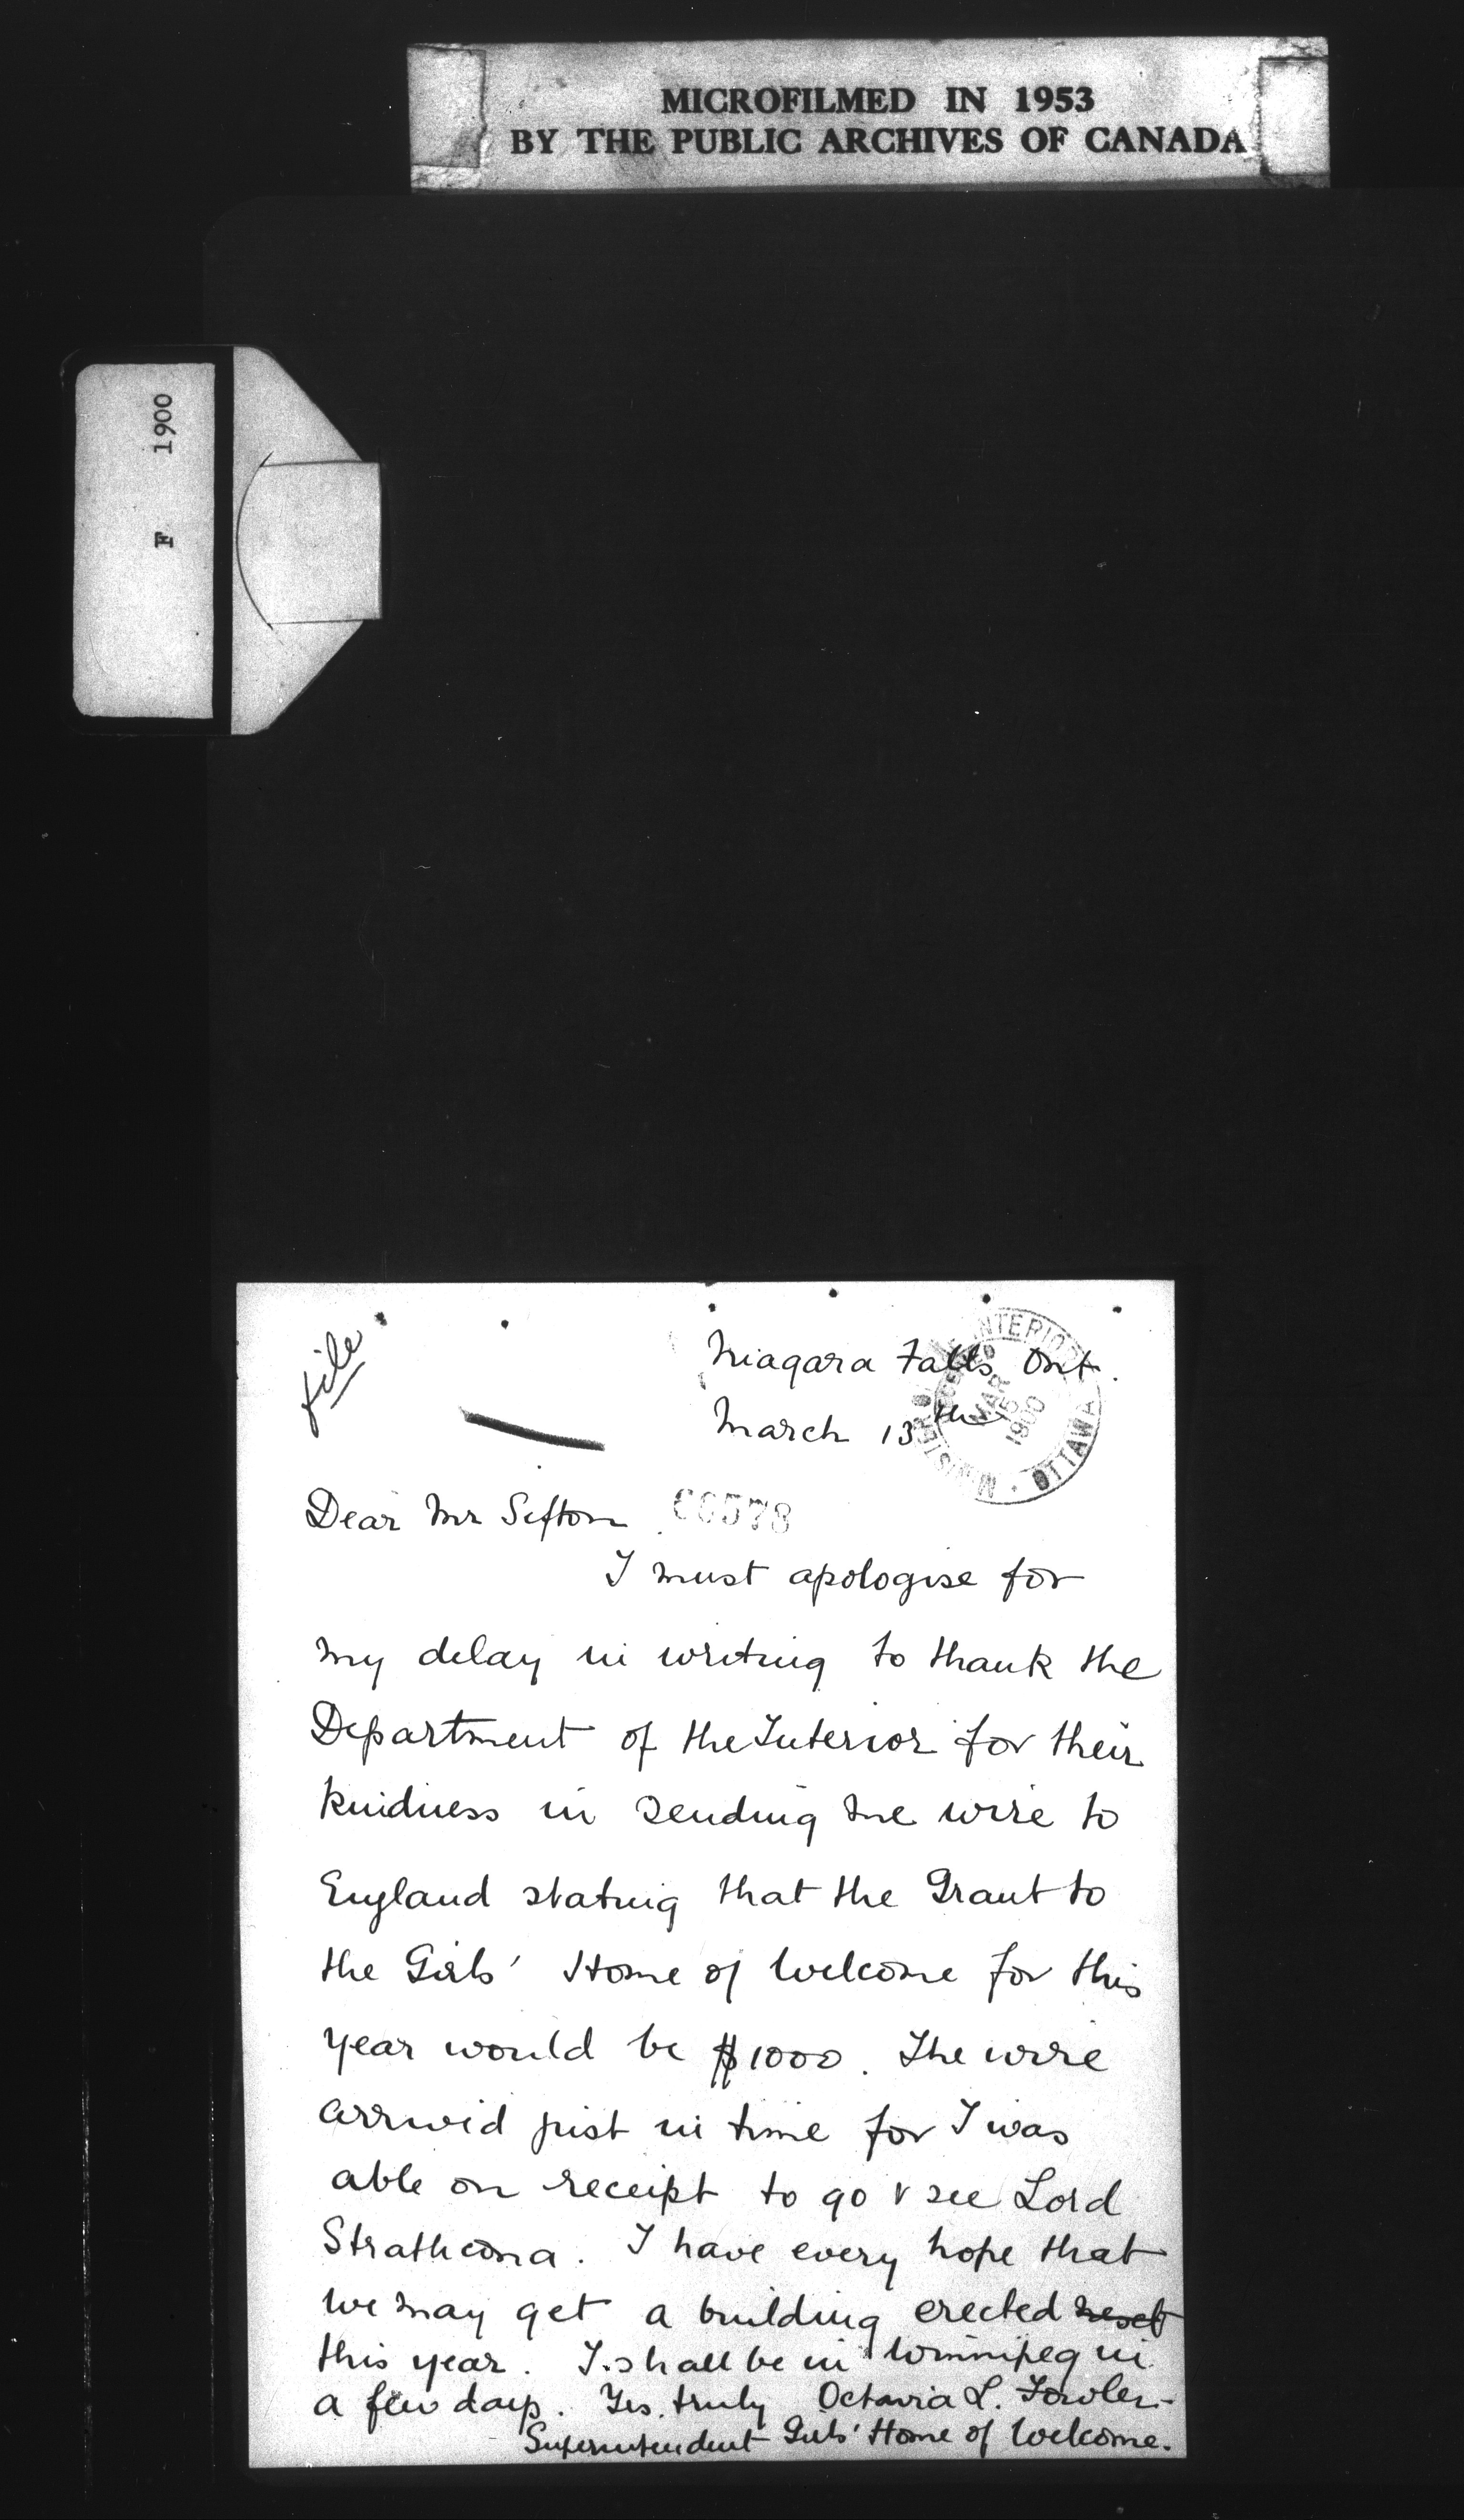 MICROFILMED IN 1953
BY THE PUBLIC ARCHIVES OF CANADA
F 1900
file
Niagara Falls Ont.
March 13th
MINISTER OF THE INTERIOR
RECEIVED
MAR
15
1900
OTTAWA
Dear Mr Sifton
66573
I must apologise for
my delay in writing to thank the
Department of the Interior for their
kindness in sending me wire to
England stating that the Grant to
the Girls' Home of Welcome for this
year would be $1000. The wire
arrived just in time for I was
able on receipt to go & see Lord
Strathcona. I have every hope that
we may get a building erected next
this year. I shall be in Winnipeg in
a few days. Yrs. truly Octavia L. Fowler-
Superintendent Girls' Home of Welcome.